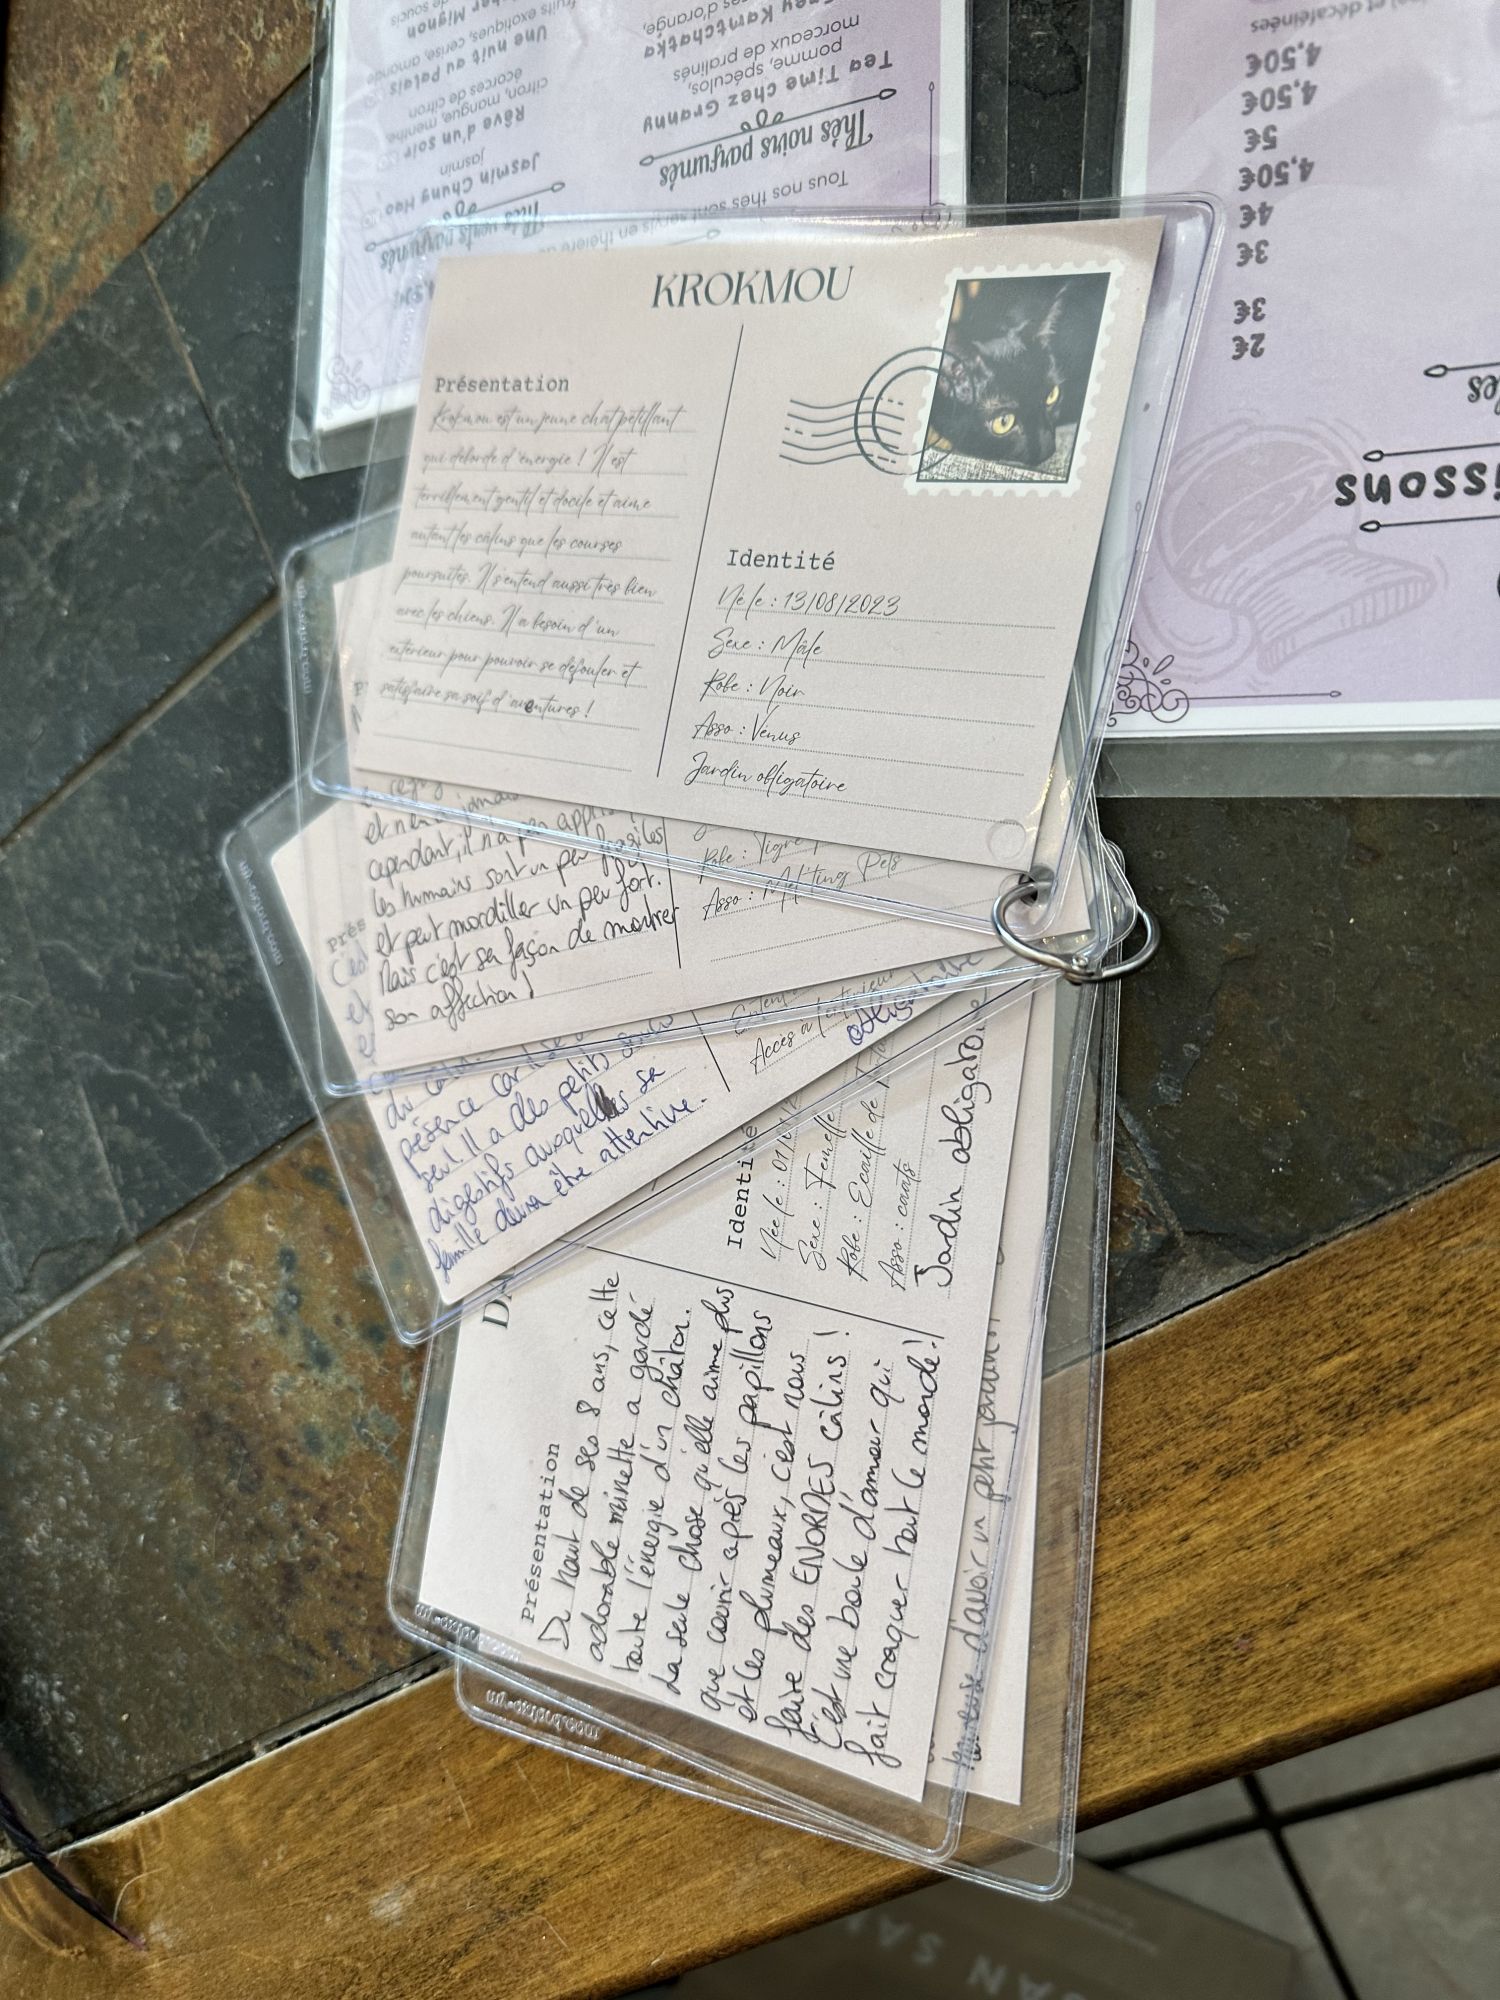 KROKMOU
Présentation
Krokmou est un jeune chat pétillant
qui déborde d'énergie ! Il est
terriblement gentil et docile et aime
autant les câlins que les courses
poursuites. Il s'entend aussi très bien
avec les chiens. Il a besoin d'un
extérieur pour pouvoir se défouler et
satisfaire sa soif d'aventures !
Identité
Né le : 13/08/2023
Sexe : Mâle
Robe : Noir
Asso : Vénus
Jardin obligatoire
et n'en a jamais
cependant, il n'a pas appris
les humains sont un peu fragiles
et peut mordiller un peu fort.
Mais c'est sa façon de montrer
son affection !
Robe : Tigré
Asso : Mel'ting Pets
Prés
C'est
et
du câlin
présence car
seul. Il a des petits soucis
digestifs auxquelles sa
famille devra être attentive.
Accès à l'extérieur
obligatoire
Présentation
Du haut de ses 8 ans, cette
adorable minette a gardé
toute l'énergie d'un châton.
La seule chose qu'elle aime plus
que courir après les papillons
et les plumeaux, c'est nous
faire des ENORMES câlins !
C'est une boule d'amour qui
fait craquer tout le monde !
Identité
Née le : 01/
Sexe : Femelle
Robe : Ecaille de
Asso : caats
Jardin obligatoire
heureuse d'avoir un petit jardin
Tous nos thés sont servis en théière
Thés noirs parfumés
Tea Time chez Granny
pomme, spéculos,
morceaux de pralinés
Kantchatka
d'orange,
Thés verts parfumés
Jasmin Chung Hao
jasmin
Rêve d'un soir
citron, mangue, menthe,
écorces de citron
Une nuit au Palais
fruits exotiques, cerise, amande
Mignon
de soucis
issons
les
2€
3€
3€
4€
4,50€
5€
4,50€
4,50€
et décaféinées